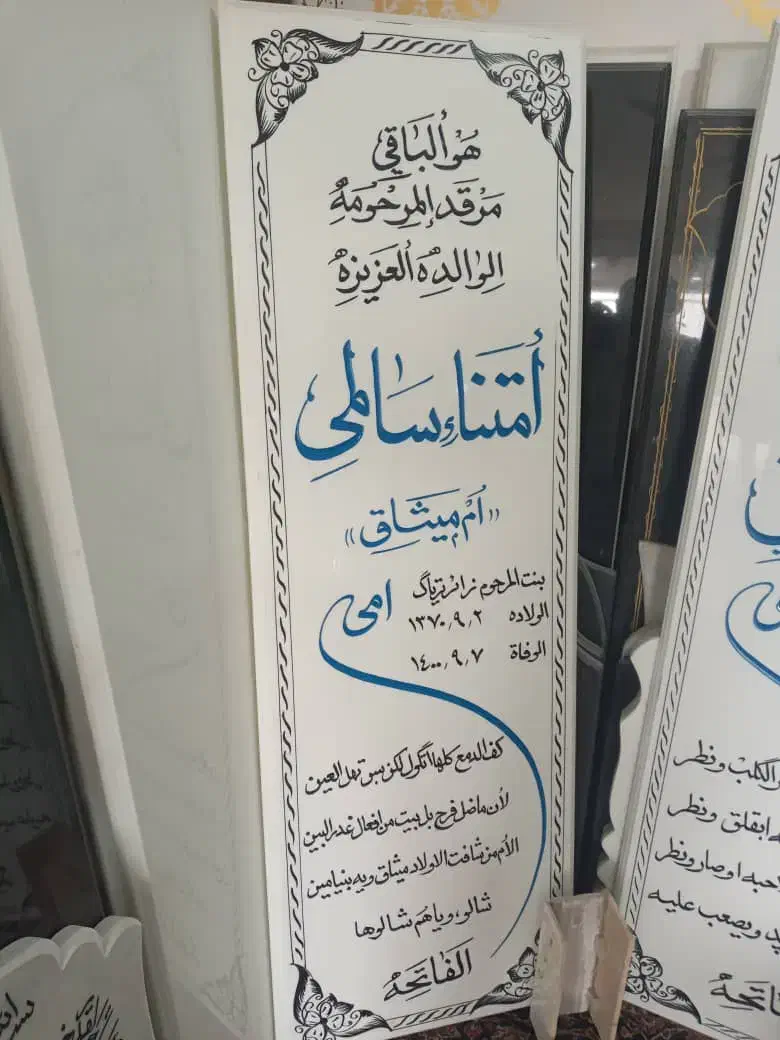 هُوَ ٱلبَاقِي
مَرْقَد اِلمَرحُومَهْ
اِلوَالِدِه ٱلعَزيزِهْ
أُمَنَاء سَالمِي
«أم مِيثَاقِ»
بنت المرحوم زائر تریاگ
الولاده ۱۳۷۰٫۹٫۲
الوفاة ۱٤۰۰٫۹٫۷
امي
كف الدمع كلها اتگول لكن بس تهل العين
لأن ماضل فرح بل بيت من افعال غدر البين
الأم من شافت الاولاد ميثاق ويه بنيامين
شالو، وياهم شالوها
الفَاتِحهْ
الكلب ونظر
ابقلق ونظر
حبه اوصار ونظر
ويصعب عليه
الفَاتِحهْ